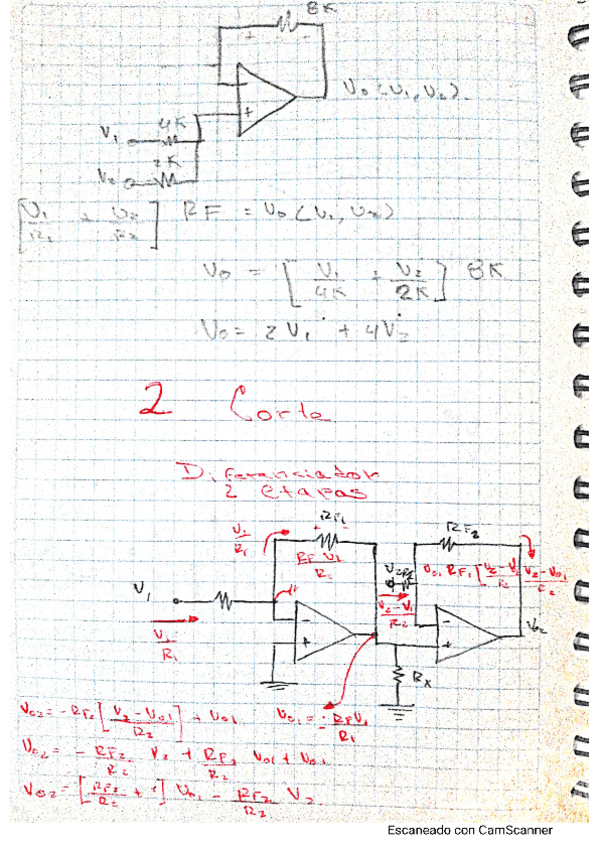 8K
Vo (V1, V2).
4K
V1
2K
V2
[V1/R1 + V2/R2] RF = Vo (V1, V2)
Vo = [V1/4K + V2/2K] 8K
Vo = 2V1 + 4V2
2 Corte
Diferenciador
2 etapas
V1/R1
RF1
RF V1/R1
RF2
V1
V1/R1
V2-V1/R2
V2-Vo1/R2
Vo2
Rx
Vo2 = -RF2 [V2-Vo1/R2] + Vo1
Vo1 = - RF V1/R1
Vo2 = - RF2/R2 V2 + RF2/R2 Vo1 + Vo1
Vo2 = [RF2/R2 + 1] Vo1 - RF2/R2 V2
Escaneado con CamScanner